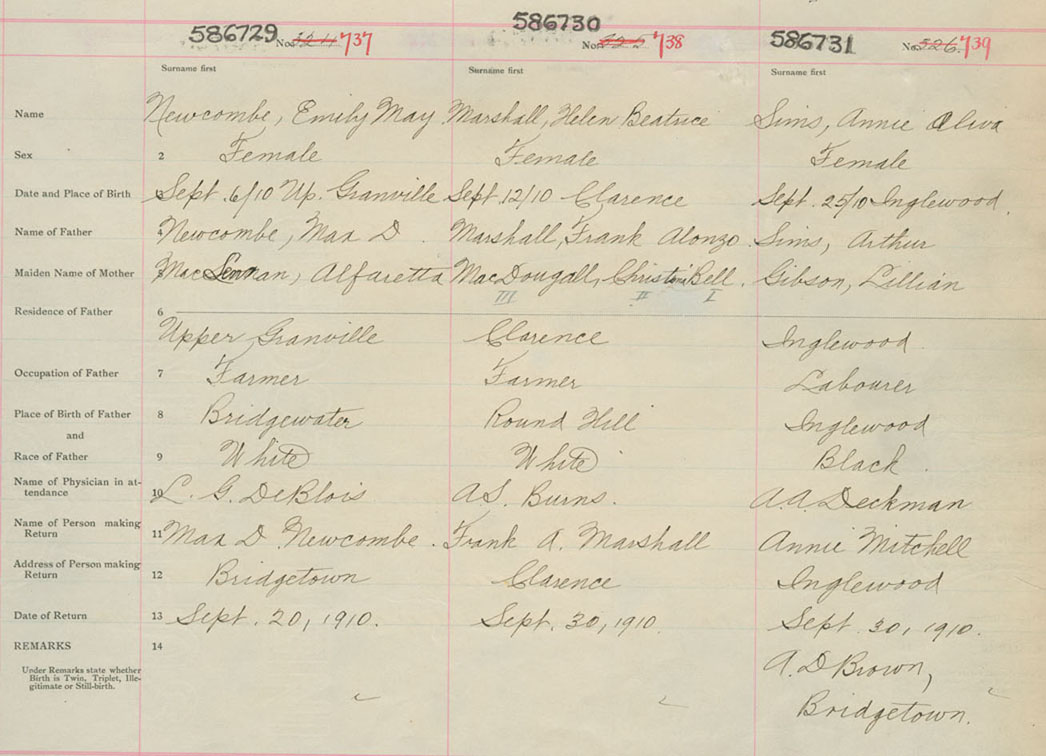 586729 No. 737
586730 No. 738
586731 No. 526. 739
Surname first Surname first Surname first
Name Newcombe, Emily May Marshall, Helen Beatrice Sims, Annie Oliva
Sex 2 Female Female Female
Date and Place of Birth Sept. 6/10 Up. Granville Sept. 12/10 Clarence Sept. 25/10 Inglewood.
Name of Father 4 Newcombe, Max D. Marshall, Frank Alonzo Sims, Arthur
Maiden Name of Mother 5 MacLennan, Alfaretta MacDougall, Christine Bell. Gibson, Lillian
III II I
Residence of Father 6
Upper Granville Clarence Inglewood.
Occupation of Father 7 Farmer Farmer Labourer
Place of Birth of Father 8 Bridgewater Round Hill Inglewood
and
Race of Father 9 White White Black.
Name of Physician in at-
tendance 10 L. G. DeBlois A.S. Burns. A.A. Deckman
Name of Person making
Return 11 Max D. Newcombe. Frank A. Marshall Annie Mitchell
Address of Person making
Return 12 Bridgetown Clarence Inglewood
Date of Return 13 Sept. 20, 1910. Sept. 30, 1910. Sept. 30, 1910.
REMARKS 14
A. D Brown,
Bridgetown.
Under Remarks state whether
Birth is Twin, Triplet, Ille-
gitimate or Still-birth.